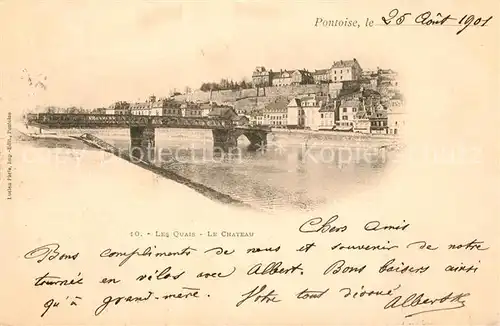 Pontoise, le 25 Août 1901
Lucien Piéri, Imp.-Edit., Pontoise
10. - Les Quais - Le Chateau
Chers Amis
Bons compliments de nous et souvenir de notre
tournée en vélos avec Albert. Bons baisers ainsi
qu'à grand-mère. Votre tout dévoué Albert